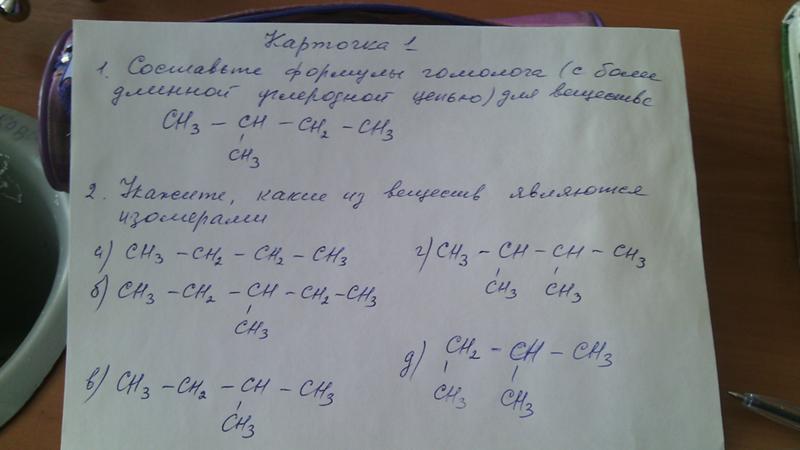 Карточка 1
1. Составьте формулы гомолога (с более
длинной углеродной цепью) для веществ
CH3 – CH – CH2 – CH3
CH3
2. Укажите, какие из веществ являются
изомерами
а) CH3 – CH2 – CH2 – CH3
б) CH3 – CH2 – CH – CH2 – CH3
CH3
в) CH3 – CH2 – CH – CH3
CH3
г) CH3 – CH – CH – CH3
CH3 CH3
д) CH2 – CH – CH3
CH3 CH3